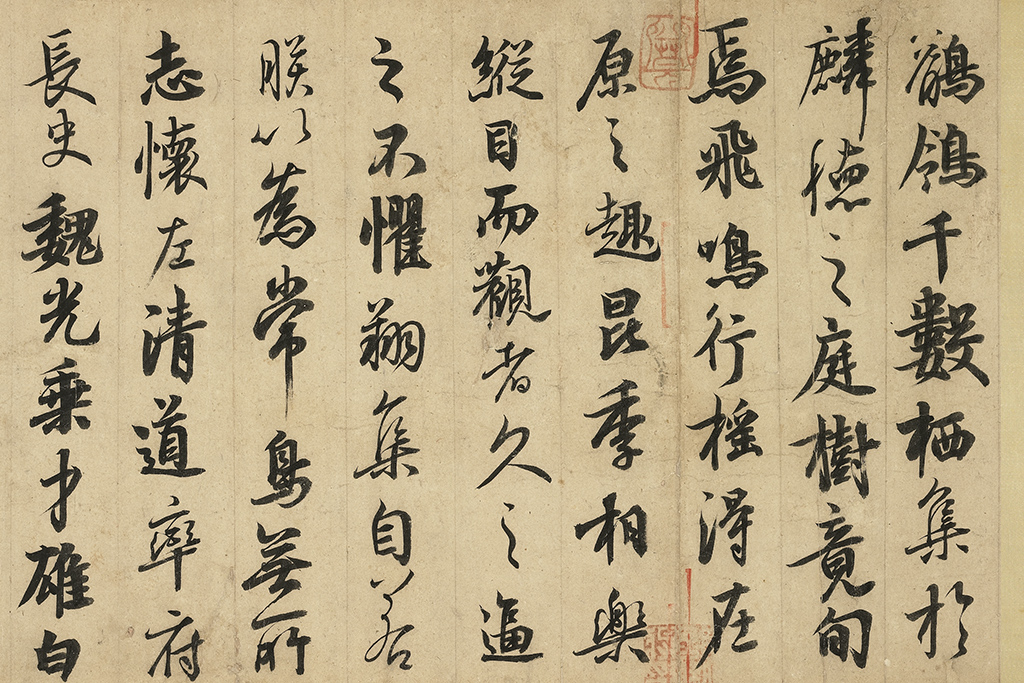 鶺鴒千數栖集於
麟德之庭樹竟旬
焉飛鳴行搖得在
原之趣昆季相樂
縱目而觀者久之逼
之不懼翔集自若
朕以為常鳥無所
志懷左清道率府
長史魏光乗才雄白